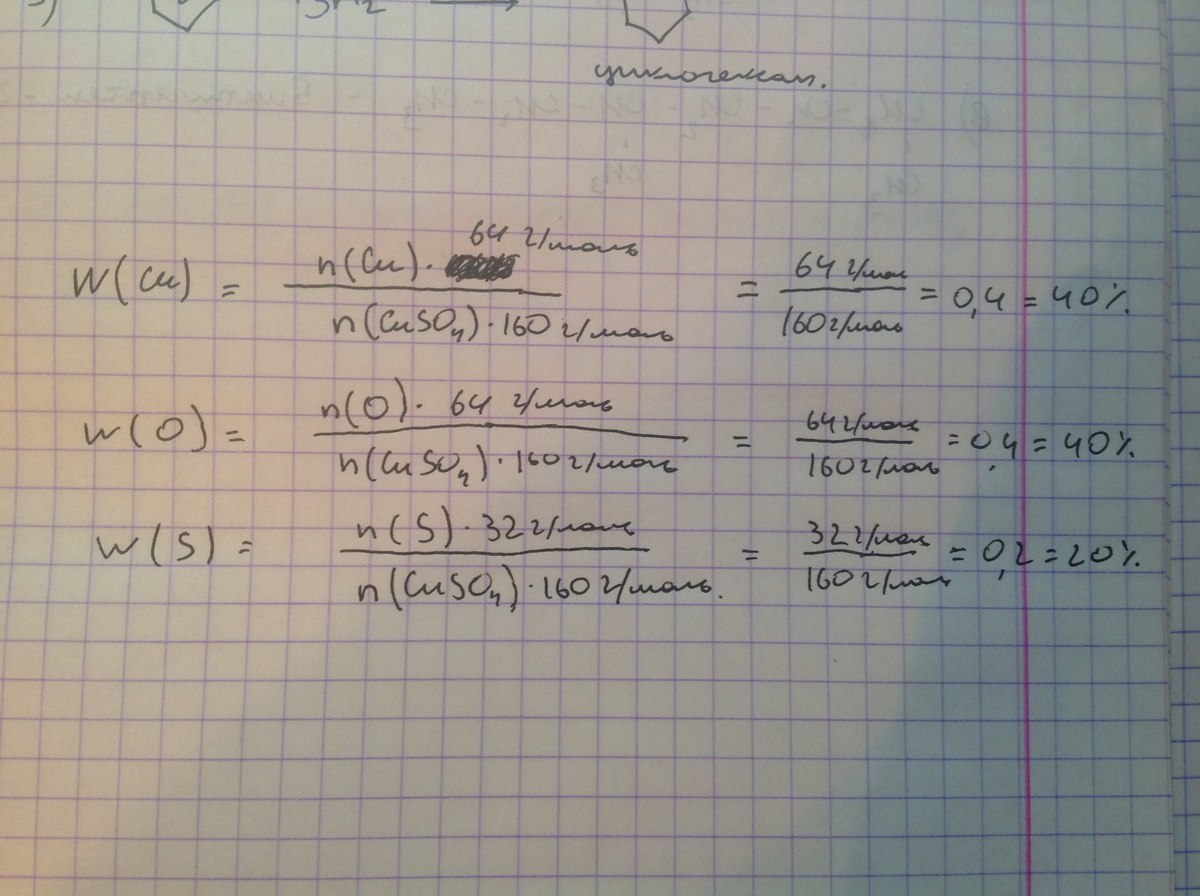 3H₂ ⟶
циклогексан.
W(Cu) = n(Cu) · 64 г/моль / n(CuSO₄) · 160 г/моль = 64 г/мол / 160 г/моль = 0,4 = 40%.
W(O) = n(O) · 64 г/моль / n(CuSO₄) · 160 г/моль = 64 г/моль / 160 г/моль = 0,4 = 40%.
W(S) = n(S) · 32 г/моль / n(CuSO₄) · 160 г/моль. = 32 г/моль / 160 г/моль = 0,2 = 20%.